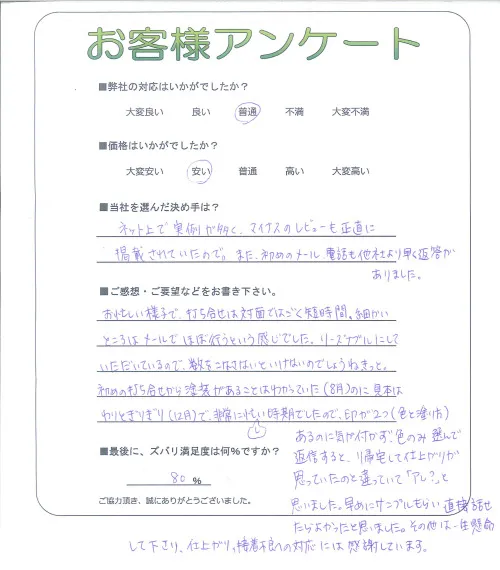 お客様アンケート
■弊社の対応はいかがでしたか?
大変良い 良い 普通 不満 大変不満
■価格はいかがでしたか?
大変安い 安い 普通 高い 大変高い
■当社を選んだ決め手は?
ネット上で実例が多く、マイナスのレビューも正直に
掲載されていたので。また、初めのメール、電話も他社より早く返答が
ありました。
■ご感想・ご要望などをお書き下さい。
お忙しい様子で、打ち合せは対面ではごく短時間、細かい
ところはメールでほぼ行うという感じでした。リーズナブルにして
いただいているので、数をこなさないといけないのでしょうねきっと。
初めの打ち合せから塗装があることはわかっていた(8月)のに見本は
わりとぎりぎり(12月)で、非常に忙しい時期でしたので、印が2つ(色と塗り方)
あるのに気が付かず、色のみ選んで
返信すると、帰宅して仕上がりが
思っていたのと違っていて「アレ?」と
思いました。早めにサンプルもらい直接話せ
たらよかったと思いました。その他は一生懸命
して下さり、仕上がり、接着不良への対応には感謝しています。
■最後に、ズバリ満足度は何%ですか?
80 %
ご協力頂き、誠にありがとうございました。